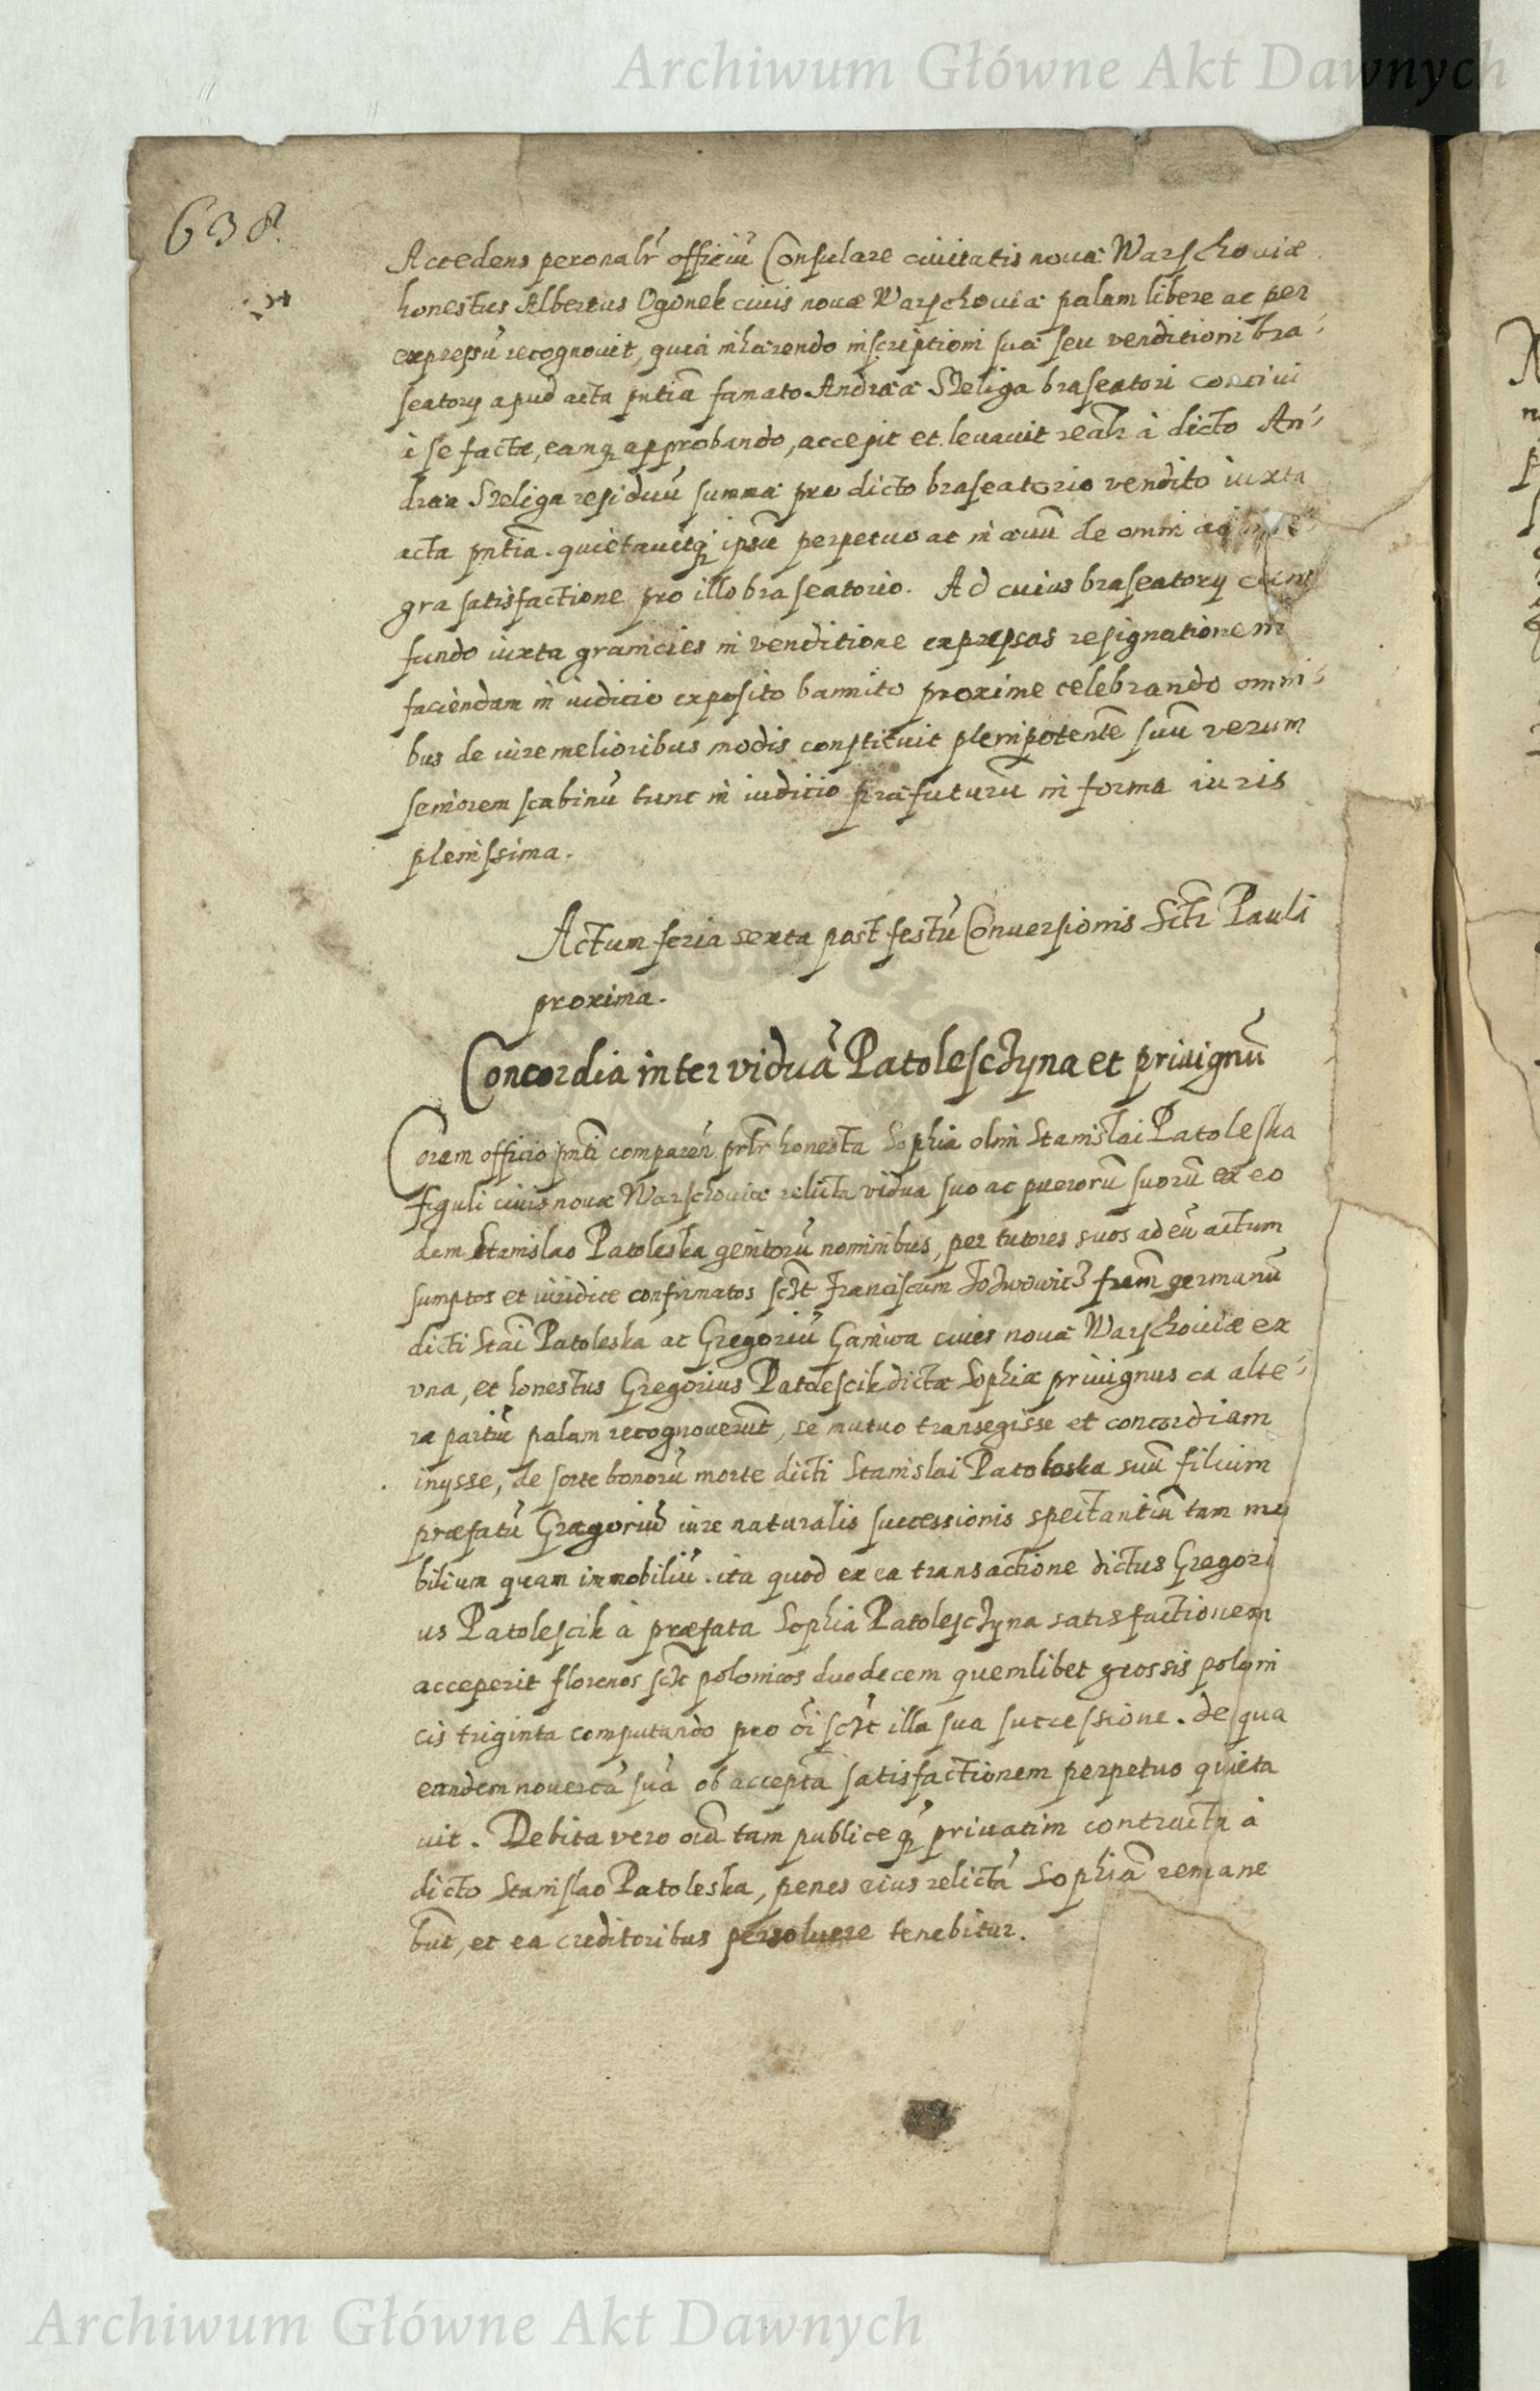 Archiwum Główne Akt Dawnych
638.
Accedens peronalr̃ officiũ Consulare ciuitatis nouæ Warschouiæ
honestus Albertus Ogonek ciuis nouæ Warschouiæ palam libere ac per
expressũ recognouit, quia inhærendo inscriptioni suæ seu venditioni bra-
seatorÿ apud acta pñtia famato Andreæ Szeliga braseatori conciui
à se factæ, eamq; approbando, accepit et leuauit realr̃ à dicto An-
drea Szeliga residuũ summæ pro dicto braseatorio vendito iuxta
acta pñtia. quietauitq; ipsũ perpetuo ac in æuũ de omni ac
gra satisfactione pro illo braseatorio. Ad cuius braseatorÿ cum
fundo iuxta granicies in venditione expressas resignationem
faciendam in iudicio exposito bannito proxime celebrando omni-
bus de iure melioribus modis constituit plenipotentẽ suũ verum
seniorem scabinũ tunc in iudicio præfuturũ in forma iuris
plenissima.
Actum feria sexta post festũ Conuersionis Scti Pauli
proxima.
Concordia inter viduã Patoleschyna et priuignũ
Coram officio pñti comparẽn prlr̃ honesta Sophia olim Stanislai Patoleska
figuli ciuis nouæ Warschouiæ relicta vidua suo ac puerorũ suorũ ex eo
dem Stanislao Patoleska genitorũ nominibus, per tutores suos ad eũ actum
sumptos et iuridice confirmatos sczt Franciscum frem̃ germanũ
dicti Stai Patoleska ac Gregoriũ Ganiwa ciues nouæ Warschouiæ ex
vna, et honestus Gregorius Patolescik dictæ Sophiæ priuignus ea alte-
ra partiũ palam recognouerũt, se mutuo transegisse et concordiam
inÿsse, de sorte bonorũ morte dicti Stanislai Patoloska suũ filium
præfatũ Gregoriũ iure naturalis successionis spectantiũ tam mo
bilium quam immobiliũ. ita quod ex ea transactione dictus Gregori
us Patolescik à præfata Sophia Patoleschyna satisfactionem
acceperit florenos sczt polonicos duodecem quemlibet grossis poloni
cis triginta computando pro õi sczt illa sua successione. de qua
eandem nouercã suã ob acceptã satisfactionem perpetuo quieta
uit. Debita vero oĩa tam publice q; priuatim contracta à
dicto Stanislao Patoleska, penes eius relictã Sophiã remane
bũt, et ea creditoribus persoluere tenebitur.
Archiwum Główne Akt Dawnych